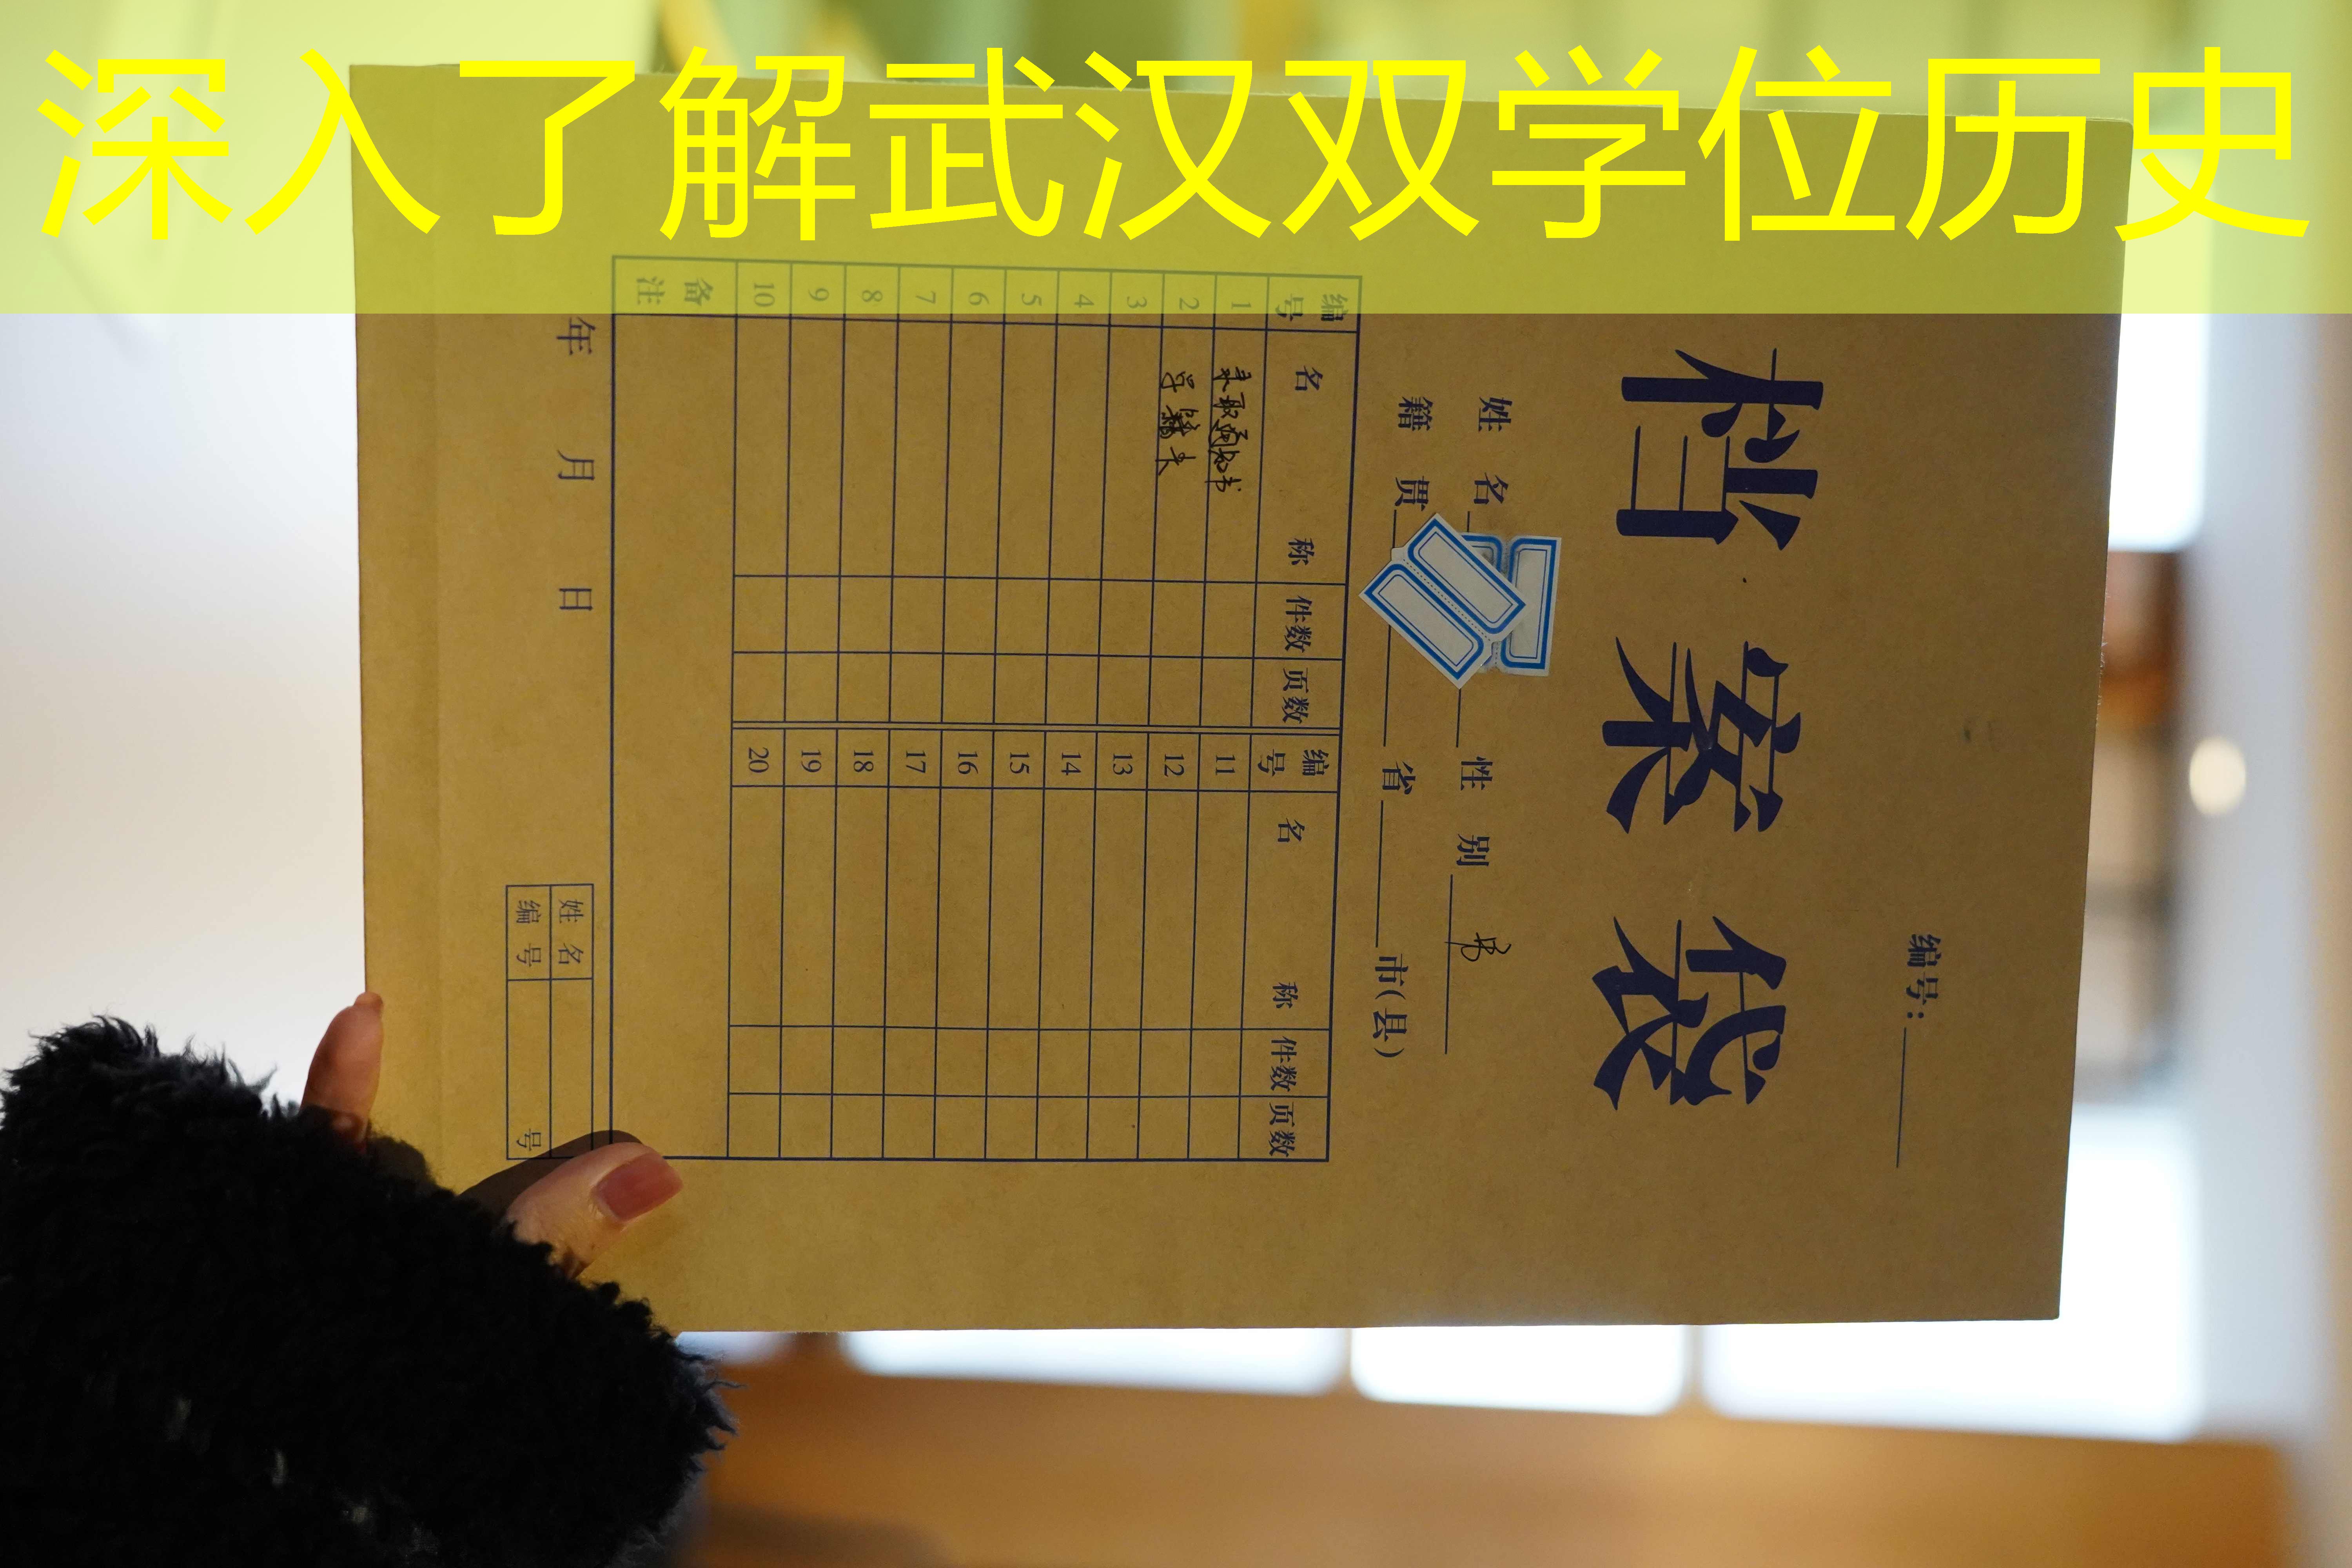 深入了解武汉双学位历史
编号:
档案袋
姓名 性别 男
籍贯 省 市(县)
编号 名称 件数 页数 编号 名称 件数 页数
1 录取通知书 11
2 学籍卡 12
3 13
4 14
5 15
6 16
7 17
8 18
9 19
10 20
备注
年 月 日
姓名
编号 号